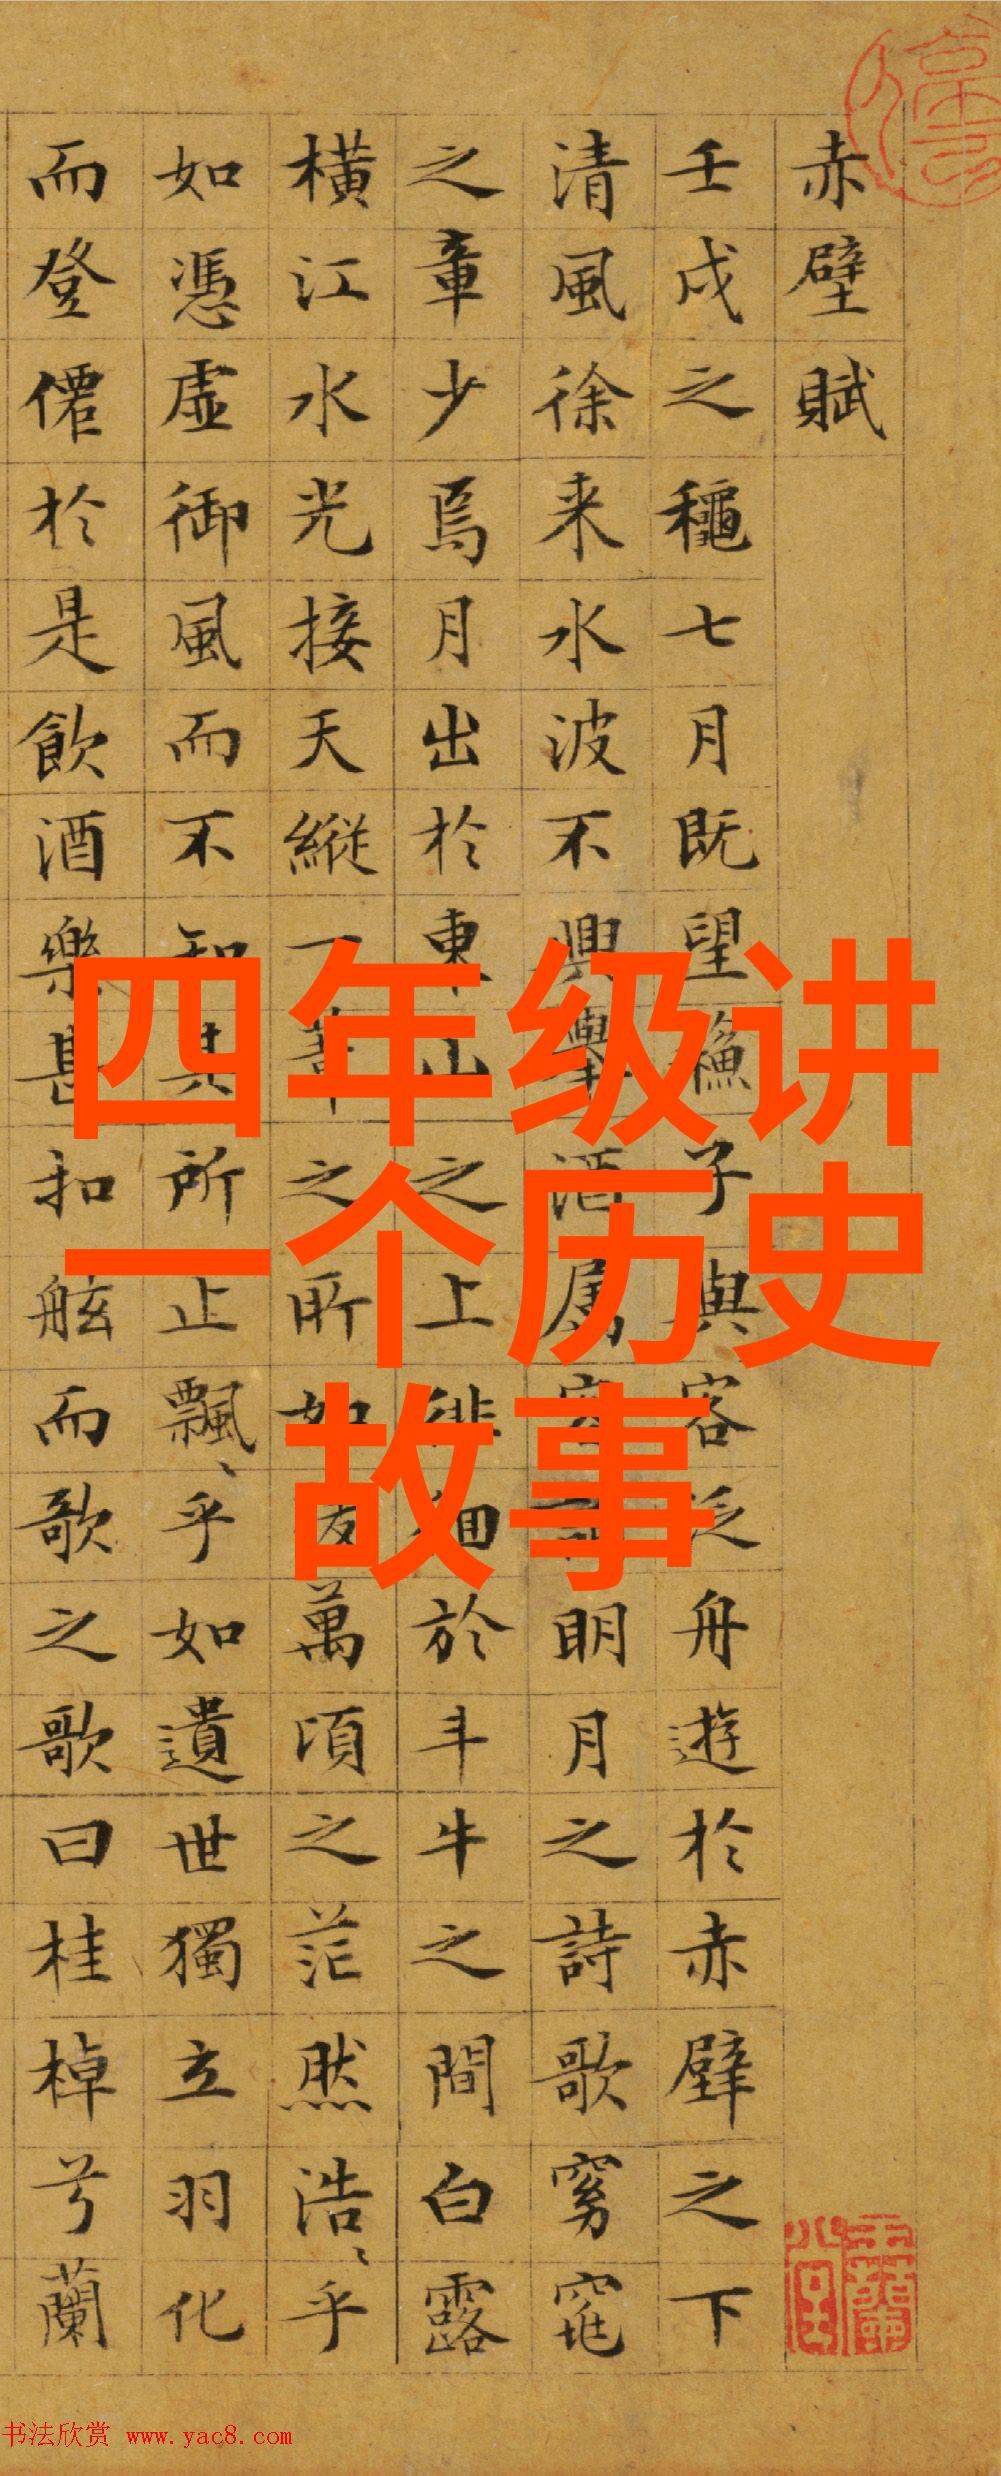 赤壁賦
壬戌之穐七月既望蘇子與客泛舟遊於赤壁之下
清風徐来水波不興舉酒屬客明月之詩歌窈窕
之章少焉月出於東山之上徘徊於斗牛之間白露
橫江水光接天縱一葦之所如萬頃之茫然浩〻乎
如憑虛御風而不知其所止飄〻乎如遺世獨立羽化
而登僊於是飲酒樂甚扣舷而歌之歌曰桂棹兮蘭
四年级讲
一个历史
故事
书法欣赏 www.yac8.com